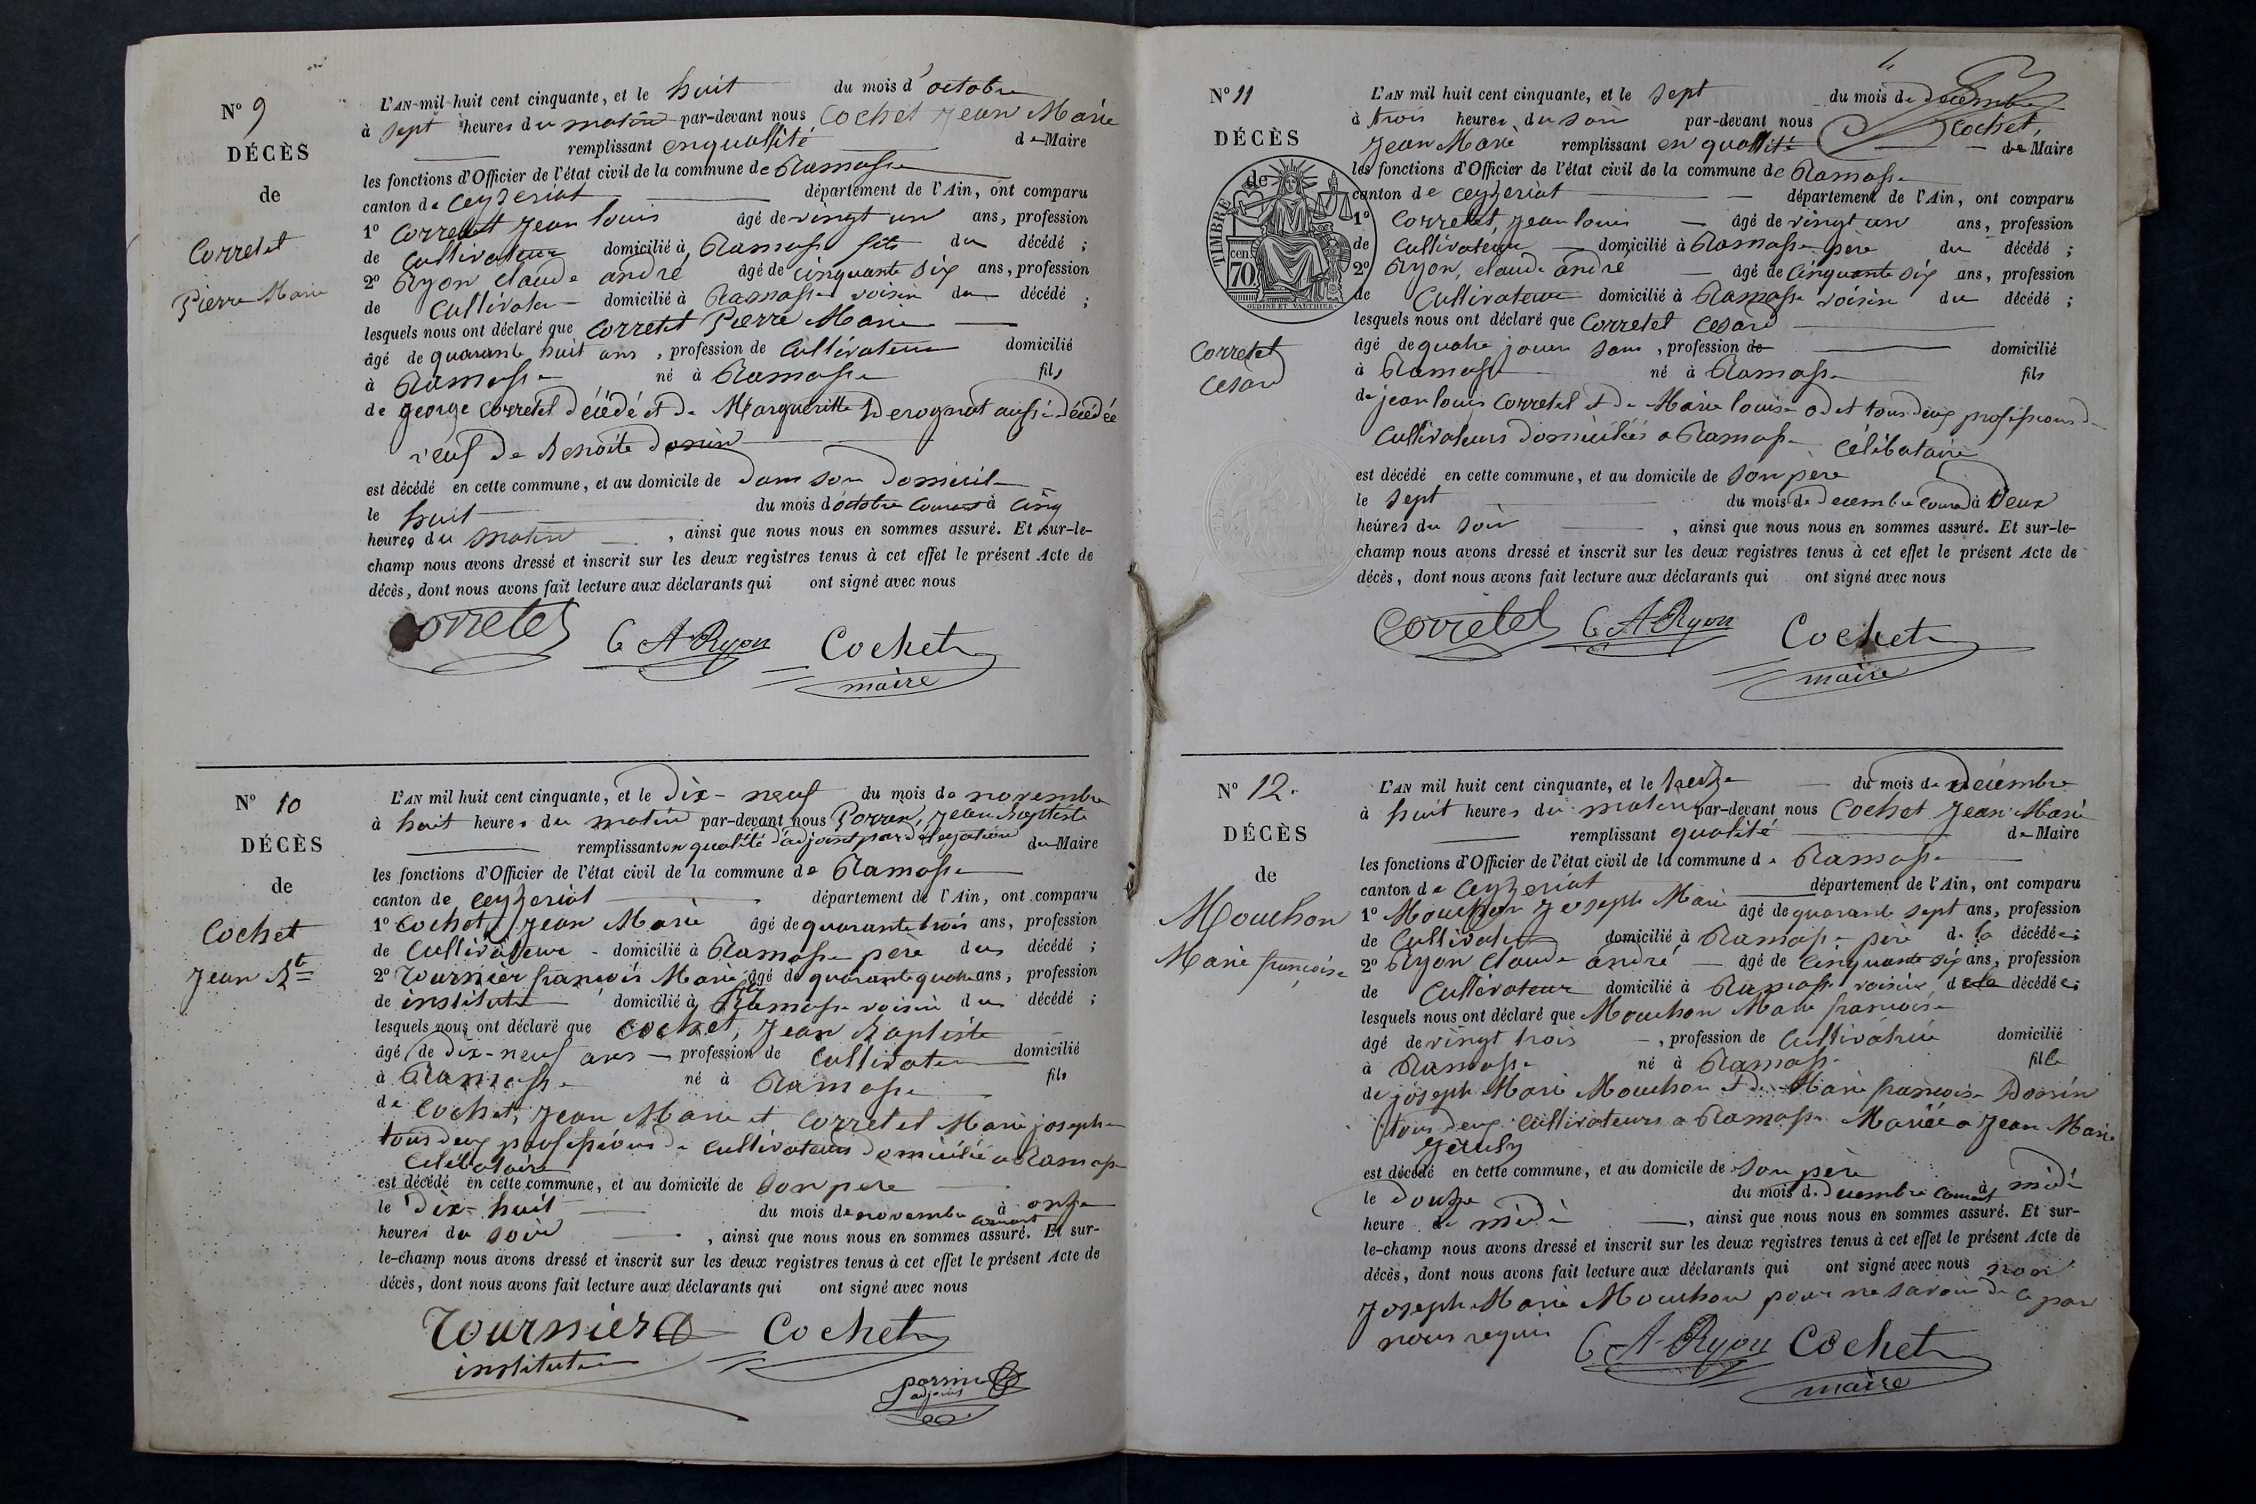 N° 9
DÉCÈS
de
Corretet
Pierre Marie
L'AN mil huit cent cinquante, et le huit du mois d'octobre
à sept heures du matin par-devant nous Cochet Jean Marie
remplissant en quallité de Maire
les fonctions d'Officier de l'état civil de la commune de Ramasse
canton de Ceyzeriat département de l'Ain, ont comparu
1° Corretet Jean louis âgé de vingt un ans, profession
de Cultivateur domicilié à Ramasse fils du décédé ;
2° Ryon claude andré âgé de cinquante six ans, profession
de Cultivateur domicilié à Ramasse voisin du décédé ;
lesquels nous ont déclaré que Corretet Pierre Marie
âgé de quarante huit ans, profession de Cultivateur domicilié
à Ramasse né à Ramasse fils
de george Corretet décédé et de Margueritte Derognat aussi décédée
veuf de Benoite donin
est décédé en cette commune, et au domicile de dans son domicile
le huit du mois d'octobre courant à cinq
heures du matin, ainsi que nous nous en sommes assuré. Et sur-le-
champ nous avons dressé et inscrit sur les deux registres tenus à cet effet le présent Acte de
décès, dont nous avons fait lecture aux déclarants qui ont signé avec nous
Corretet C A Ryon Cochet
maire
N° 10
DÉCÈS
de
Cochet
Jean Bte
L'AN mil huit cent cinquante, et le dix-neuf du mois de novembre
à huit heures du matin par-devant nous Jean Baptiste
remplissant en qualité d'adjoint par délégation du Maire
les fonctions d'Officier de l'état civil de la commune de Ramasse
canton de Ceyzeriat département de l'Ain, ont comparu
1° Cochet, Jean Marie âgé de quarante trois ans, profession
de Cultivateur domicilié à Ramasse père du décédé ;
2° Tournier françois Marie âgé de quarante quatre ans, profession
de instituteur domicilié à Ramasse voisin du décédé ;
lesquels nous ont déclaré que Cochet, Jean Baptiste
âgé de dix-neuf ans profession de Cultivateur domicilié
à Ramasse né à Ramasse fils
de Cochet, Jean Marie et Corretet Marie josephe
tous deux professions de cultivateurs domiciliés a Ramasse
Célébataire
est décédé en cette commune, et au domicile de son pere
le dix-huit du mois de novembre courant à onze
heures du soir, ainsi que nous nous en sommes assuré. Et sur-
le-champ nous avons dressé et inscrit sur les deux registres tenus à cet effet le présent Acte de
décès, dont nous avons fait lecture aux déclarants qui ont signé avec nous
Tournier Cochet
instituteur
adjoint
N° 11
DÉCÈS
de
TIMBRE
70 cen
OUDINE ET VAUTHIER
Corretet
Cesard
L'AN mil huit cent cinquante, et le sept du mois de decembre
à trois heures du soir par-devant nous Cochet,
Jean Marie remplissant en quallité de Maire
les fonctions d'Officier de l'état civil de la commune de Ramasse
canton de Ceyzeriat département de l'Ain, ont comparu
1° Corretet, jean louis âgé de vingt un ans, profession
de Cultivateur domicilié à Ramasse père du décédé ;
2° Ryon, claude andré âgé de Cinquante six ans, profession
de Cultivateur domicilié à Ramasse voisin du décédé ;
lesquels nous ont déclaré que Corretet Cesard
âgé de quatre jours sans, profession de domicilié
à Ramasse né à Ramasse fils
de jean louis Corretet et de Marie louise odet tous deux professions de
Cultivateurs domiciliés a Ramasse Célébataire
est décédé en cette commune, et au domicile de son père
le sept du mois de decembre courant à deux
heures du soir, ainsi que nous nous en sommes assuré. Et sur-le-
champ nous avons dressé et inscrit sur les deux registres tenus à cet effet le présent Acte de
décès, dont nous avons fait lecture aux déclarants qui ont signé avec nous
Corretet C A Ryon Cochet
maire
N° 12.
DÉCÈS
de
Mouchon
Marie françoise
L'AN mil huit cent cinquante, et le treize du mois de decembre
à huit heures du matin par-devant nous Cochet Jean Marie
remplissant qualité de Maire
les fonctions d'Officier de l'état civil de la commune de Ramasse
canton de Ceyzeriat département de l'Ain, ont comparu
1° Mouchon Joseph Marie âgé de quarante sept ans, profession
de Cultivateur domicilié à Ramasse père de la décédée ;
2° Ryon Claude andré âgé de Cinquante six ans, profession
de Cultivateur domicilié à Ramasse voisin de la décédée ;
lesquels nous ont déclaré que Mouchon Marie françoise
âgé de vingt trois, profession de Cultivatrice domicilié
à Ramasse né à Ramasse fille
de joseph Marie Mouchon et de Marie françoise Donin
tous deux Cultivateurs a Ramasse Mariée a Jean Marie
est décédé en cette commune, et au domicile de son père
le douze du mois de decembre courant à midi
heure de midi, ainsi que nous nous en sommes assuré. Et sur-
le-champ nous avons dressé et inscrit sur les deux registres tenus à cet effet le présent Acte de
décès, dont nous avons fait lecture aux déclarants qui ont signé avec nous non
Joseph Marie Mouchon pour ne savoir de ce par
nous requis C A Ryon Cochet
maire